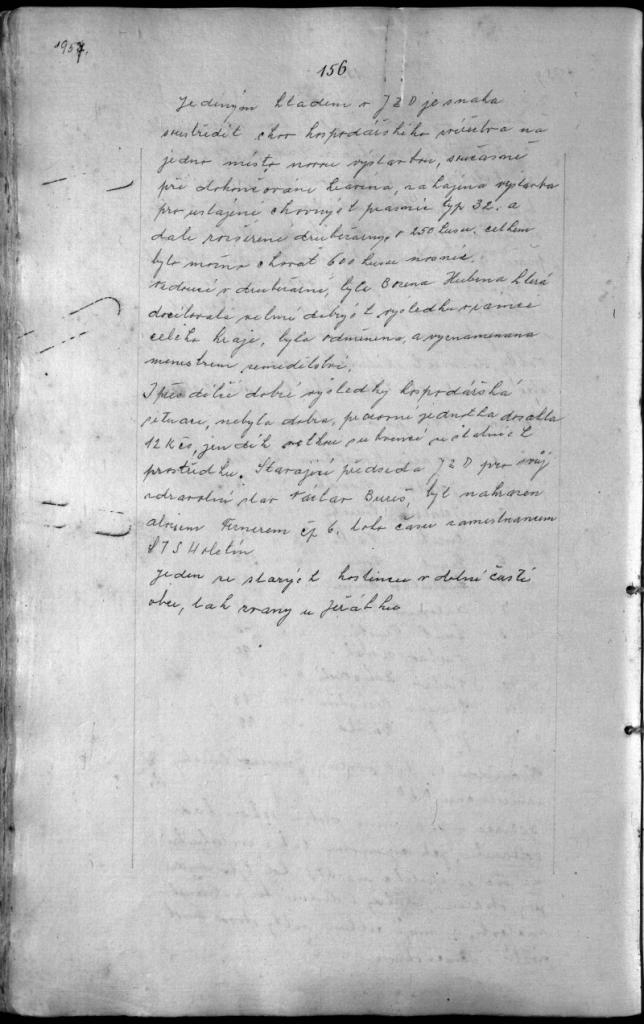 1957.
156
Jediným kladem v JZD je snaha
soustředit chov hospodářského zvířectva na
jedno místo novou výstavbou, současně
při dokončování kravína, zahájena výstavba
pro ustájení chovných prasnic typ 32. a
dále rozšíření drůbežárny, o 250 kusů. celkem
bylo možno chovat 600 kusů nosnic.
vedoucí v drůbežárně, byla Božena Hubená která
docilovala velmi dobrých výsledků v rámci
celého kraje, byla odměněna, a vyznamenána
ministrem zemědělství.
I přes dílčí dobré výsledky hospodářská
situace, nebyla dobrá, pracovní jednotka dosáhla
12 Kčs, jen dík velkou subvencí ze státních
prostředků. Starající předseda JZD pro svůj
zdravotní stav Václav Bureš, byl nahrazen
Aloisem Fernerem čp 6. toho času zaměstnancem
STS Holetín
Jeden ze starých hostinců v dolní části
obce, tak zvaný u Jeřábků